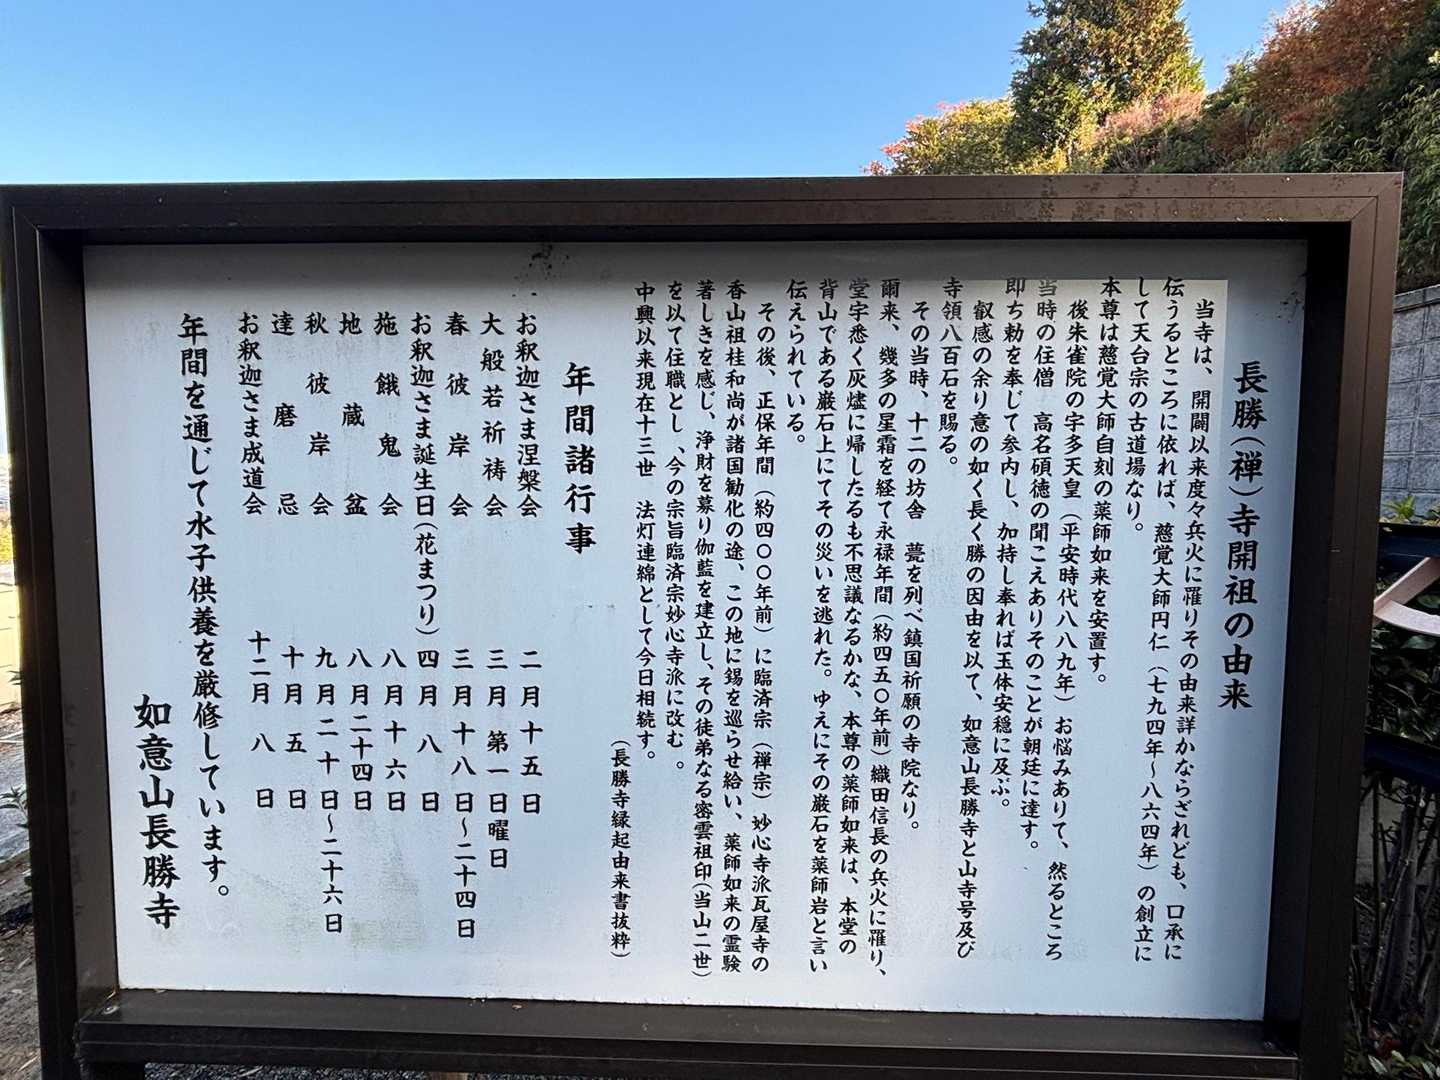 長勝(禅)寺開祖の由来
当寺は、開闢以来度々兵火に罹りその由来詳かならざれども、口承に
伝うるところに依れば、慈覚大師円仁（七九四年～八六四年）の創立に
して天台宗の古道場なり。
本尊は慈覚大師自刻の薬師如来を安置す。
後朱雀院の宇多天皇（平安時代八八九年）お悩みありて、然るところ
当時の住僧 高名碩徳の聞こえありそのことが朝廷に達す。
即ち勅を奉じて参内し、加持し奉れば玉体安穏に及ぶ。
叡感の余り意の如く長く勝の因由を以て、如意山長勝寺と山寺号及び
寺領八百石を賜る。
その当時、十二の坊舎 甍を列べ鎮国祈願の寺院なり。
爾来、幾多の星霜を経て永禄年間（約四五〇年前）織田信長の兵火に罹り、
堂宇悉く灰燼に帰したるも不思議なるかな、本尊の薬師如来は、本堂の
背山である巌石上にてその災いを逃れた。ゆえにその巌石を薬師岩と言い
伝えられている。
その後、正保年間（約四〇〇年前）に臨済宗（禅宗）妙心寺派瓦屋寺の
香山祖桂和尚が諸国勧化の途、この地に錫を巡らせ給い、薬師如来の霊験
著しきを感じ、浄財を募り伽藍を建立し、その徒弟なる密雲祖印(当山二世)
を以て住職とし、今の宗旨臨済宗妙心寺派に改む。
中興以来現在十三世 法灯連綿として今日相続す。
（長勝寺縁起由来書抜粋）
年間諸行事
お釈迦さま涅槃会 二月十五日
大般若祈祷会 三月第一日曜日
春彼岸会 三月十八日～二十四日
お釈迦さま誕生日(花まつり) 四月八日
施餓鬼会 八月十六日
地蔵盆 八月二十四日
秋彼岸会 九月二十日～二十六日
達磨忌 十月五日
お釈迦さま成道会 十二月八日
年間を通じて水子供養を厳修しています。
如意山長勝寺